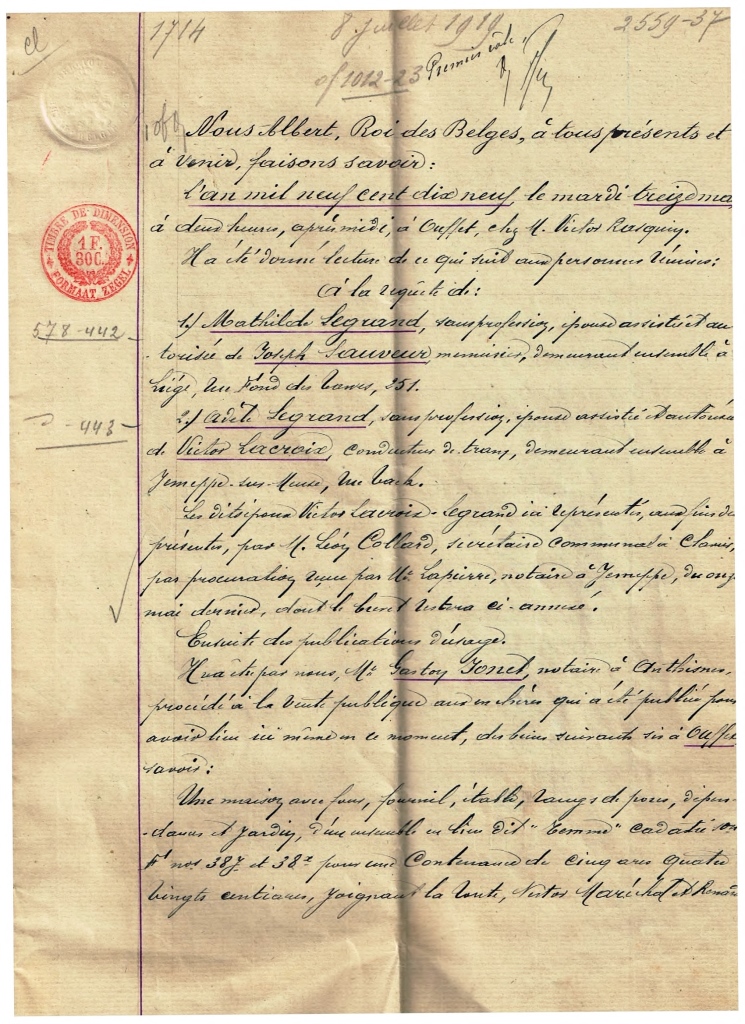 cl
1714
8 juillet 1919
2559-37
of 1012-23
Premier rôle
Nous Albert, Roi des Belges, à tous présents et
à venir, faisons savoir:
L'an mil neuf cent dix neuf, le mardi treize ma
à deux heures, après midi, à Ouffet, chez M. Victor Rasquin.
Il a été donné lecture de ce qui suit aux personnes réunies:
TIMBRE DE DIMENSION
1 F.
30 C.
FORMAAT ZEGEL
à la requête de:
578-442
1.) Mathilde Legrand, sans profession, épouse assistée et au
-torisée de Joseph Sauveur, menuisier, demeurant ensemble à
Liège, rue Fond des Tawes, 251.
-443-
2.) Adèle Legrand, sans profession, épouse assistée et autorisée
de Victor Lacroix, conducteur de tram, demeurant ensemble à
Jemeppe-sur-Meuse, rue
Les dits époux Victor Lacroix-Legrand ici représentés, aux fins des
présentes, par M. Léon Collard, secrétaire communal à
par procuration reçue par Me Lapierre, notaire à Jemeppe, du onz
mai dernier, dont le brevet restera ci-annexé.
Ensuite des publications d'usage.
Il va être par nous, Me Gaston Jonet, notaire à Anthisnes,
procédé à la vente publique aux enchères qui a été publiée pour
avoir lieu ici même en ce moment, des biens suivants sis à Ouffe
savoir:
Une maison avec four, fournil, étable, rangs de porcs, dépen-
-dances et jardin, d'un ensemble en lieu dit "Temme" cadastré son
F nos 387 et 38 pour une contenance de cinq ares quatre
vingts centiares, joignant la route, Nestor Maréchal et